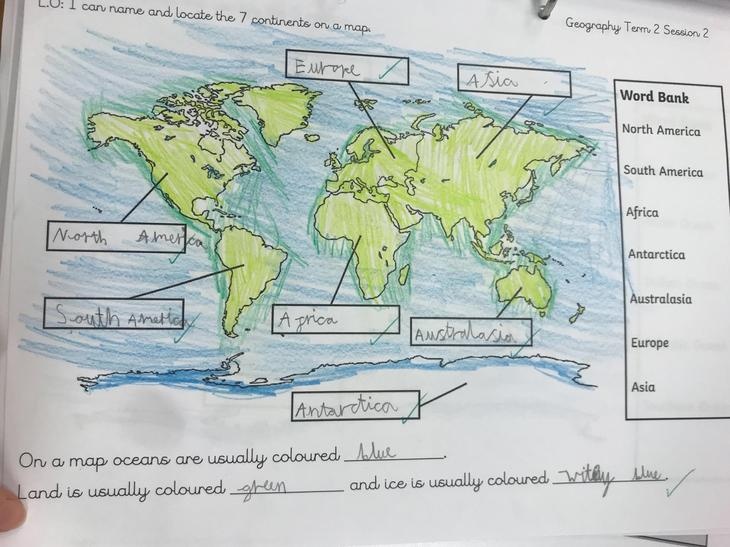 L.O: I can name and locate the 7 continents on a map.
Geography Term 2 Session 2
Europe
Asia
Word Bank
North America
South America
Africa
Antarctica
Australasia
Europe
Asia
North America
South America
Africa
Australasia
Antarctica
On a map oceans are usually coloured blue.
Land is usually coloured green and ice is usually coloured blue.